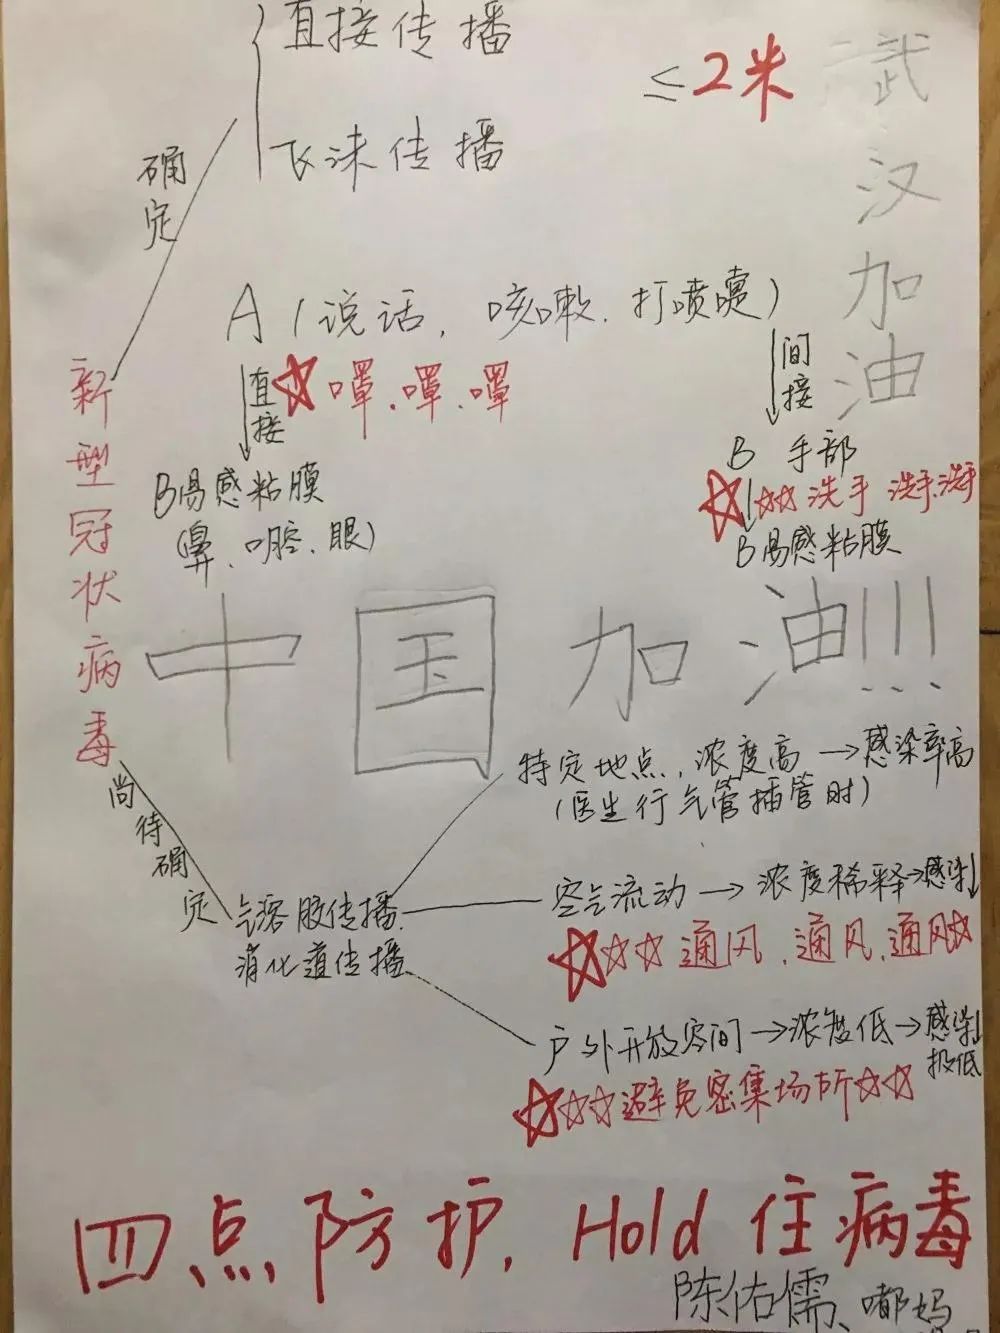 直接传播
飞沫传播
≤2米
武汉加油
确定
新型冠状病毒
A(说话,咳嗽.打喷嚏)
直接
☆罩.罩.罩
间接
B易感粘膜
(鼻.口腔.眼)
B 手部
☆☆☆洗手 洗手.洗手
B易感粘膜
中国加油!!!
尚待确定
气溶胶传播.
消化道传播
特定地点,浓度高→感染率高
(医生行气管插管时)
空气流动→浓度稀释→感染↓
☆☆☆通风.通风.通风☆
户外开放空间→浓度低→感染↓
极低
☆☆☆避免密集场所☆☆
四点防护,Hold住病毒
陈佑儒、嘟妈